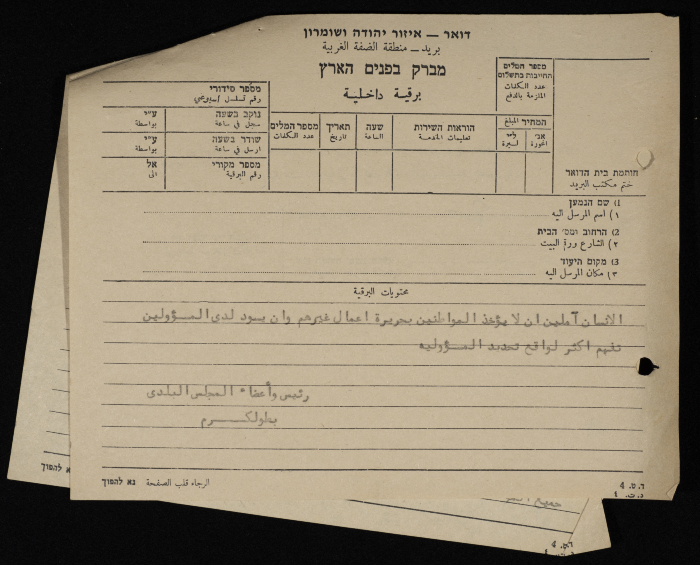 דואר — איזור יהודה ושומרון
بريد — منطقة الضفة الغربية
מברק בפנים הארץ
برقية داخلية
מספר המלים
החייבות בתשלום
عدد الكلمات
الملزمة بالدفع
מספר סידורי
רקم تسلسل
נוקב בשעה
سجل في ساعة
ע״י
بواسطة
שודר בשעה
ارسل في ساعة
ע״י
بواسطة
מספר מקורי
رقم البرقية
אל
الى
מספר המלים
عدد الكلمات
תאריך
تاريخ
שעה
الساعة
הוראות השירות
تعليمات الخدمة
המחיר المبلغ
ל״י
ليرة
אג׳
اجورة
חותמת בית הדואר
ختم مكتب البريد
1) שם הנמען
١) اسم المرسل اليه
2) הרחוב ומס׳ הבית
٢) الشارع ورقم البيت
3) מקום היעוד
٣) مكان المرسل اليه
محتويات البرقية
الانسان آملين ان لا يؤخذ المواطنين بجريرة اعمال غيرهم وان يسود لدى المسؤولين
تفهم اكثر لواقع تحديد المسؤوليه
رئيس وأعضاء المجلس البلدي
بطولكرم
נא להפוך
الرجاء قلب الصفحة
ד. ט. 4
جميع
ד.ט. 4